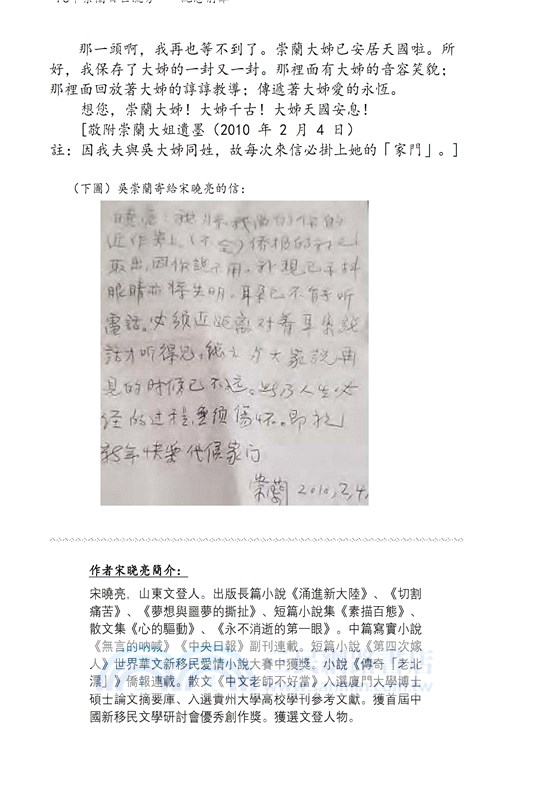 那一頭啊，我再也等不到了。崇蘭大姊已安居天國啦。所
好，我保存了大姊的一封又一封。那裡面有大姊的音容笑貌；
那裡面回放著大姊的諄諄教導；傳遞著大姊愛的永恆。
想您，崇蘭大姊！大姊千古！大姊天國安息！
[敬附崇蘭大姐遺墨（2010 年 2 月 4 日）
註：因我夫與吳大姊同姓，故每次來信必掛上她的「家門」。]
（下圖）吳崇蘭寄給宋曉亮的信：
曉亮：我
近作寄上（不全）僑報的
取出，因你說不用。我現已手抖
眼睛亦將失明。耳朵已不能手听
電話。必須近距離对着耳朵說
話才听得見，總之与大家說再
見的時候已不远。此乃人生必
经的过程，無須傷怀。即祝
新年快樂 代候家门
崇蘭 2010,2,4,
作者宋曉亮簡介：
宋曉亮，山東文登人。出版長篇小說《涌進新大陸》、《切割
痛苦》、《夢想與噩夢的撕扯》、短篇小說集《素描百態》、
散文集《心的驅動》、《永不消逝的第一眼》。中篇寫實小說
《無言的吶喊》《中央日報》副刊連載。短篇小說《第四次嫁
人》世界華文新移民愛情小說大賽中獲獎。小說《傳奇「老北
漂」》僑報連載。散文《中文老師不好當》入選廈門大學博士
碩士論文摘要庫、入選貴州大學高校學刊參考文獻。獲首屆中
國新移民文學研討會優秀創作獎。獲選文登人物。